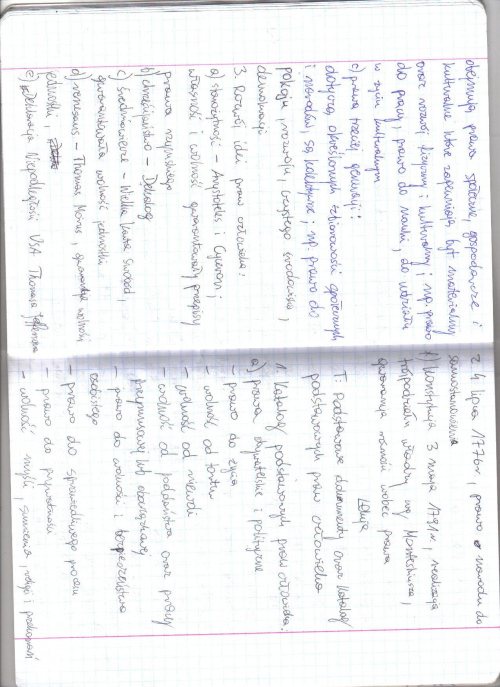 obejmują prawa społeczne, gospodarcze i
kulturalne które zapewniają byt materialny
oraz rozwój fizyczny i kulturalny; np. prawo
do pracy, prawo do nauki, do udziału
w życiu kulturalnym
c) prawa trzeciej generacji:
dotyczą określonych zbiorowości społecznych
i narodów, są kolektywne; np. prawo do
pokoju, rozwoju, czystego środowiska,
demokracji
3. Rozwój idei praw człowieka:
a) starożytność - Arystoteles i Cyceron;
własność i wolność gwarantowały przepisy
prawa rzymskiego
b) chrześcijaństwo - Dekalog
c) średniowiecze - Wielka Karta Swobód,
gwarantowała wolność jednostki
d) renesans - Thomas Morus, gwarancje wolności
jednostki,
e) Deklaracja Niepodległości USA Thomasa Jeffersona
z 4 lipca 1776r, prawo narodu do
samostanowienia
f) Konstytucja 3 maja 1791r, realizacja
trójpodziału władzy wg Monteskiusza,
gwarancja równości wobec prawa
Lekcja
T: Podstawowe dokumenty oraz katalog
podstawowych praw człowieka
1. Katalog podstawowych praw człowieka:
a) prawa obywatelskie i polityczne
- prawo do życia
- wolność od tortur
- wolność od niewoli
- wolność od poddaństwa oraz pracy
przymusowej lub obowiązkowej
- prawo do wolności i bezpieczeństwa
osobistego
- prawo do sprawiedliwego procesu
- prawo do prywatności
- wolność myśli, sumienia, religii i przekonań